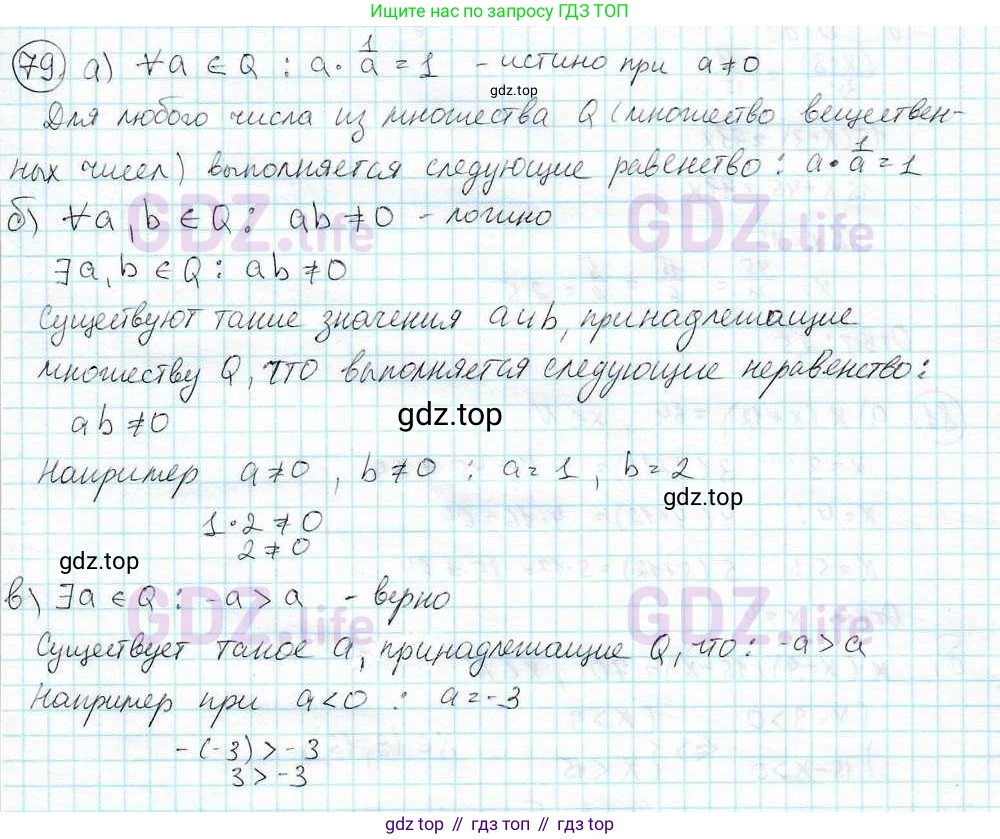 Ищите нас по запросу ГДЗ ТОП
79) а) ∀a ∈ Q : a · 1/a = 1 - истино при a ≠ 0
gdz.top
Для любого числа из множества Q (множество веществен-
ных чисел) выполняется следующие равенство : a · 1/a = 1
б) ∀a, b ∈ Q : ab ≠ 0 - логино
GDZ.life GDZ.life
∃a, b ∈ Q : ab ≠ 0
Существуют такие значения a и b, принадлежащие
множеству Q, что выполняется следующие неравенство :
ab ≠ 0
gdz.top
Например a ≠ 0, b ≠ 0 : a = 1, b = 2
gdz.top
1 · 2 ≠ 0
2 ≠ 0
gdz.top
в) ∃a ∈ Q : -a > a - верно
GDZ.life GDZ.life
Существует такое a, принадлежащие Q, что : -a > a
Например при a < 0 : a = -3
-(-3) > -3
3 > -3
gdz.top // гдз топ // gdz top